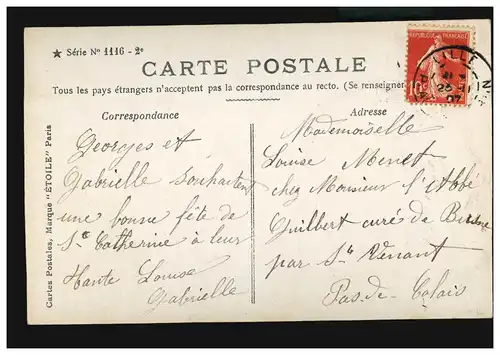 ★ Série Nº 1116 - 2e
CARTE POSTALE
Tous les pays étrangers n'acceptent pas la correspondance au recto. (Se renseigner
Correspondance
Adresse
Georges et
Gabrielle souhaitent
une bonne fête de
Ste Catherine à leur
Tante Louise
Gabrielle
Mademoiselle
Louise Menet
chez Monsieur l'Abbé
Guilbert curé de
par St Venant
Pas-de-Calais
Cartes Postales, Marque "ÉTOILE" Paris
REPUBLIQUE FRANÇAISE
LILLE
07